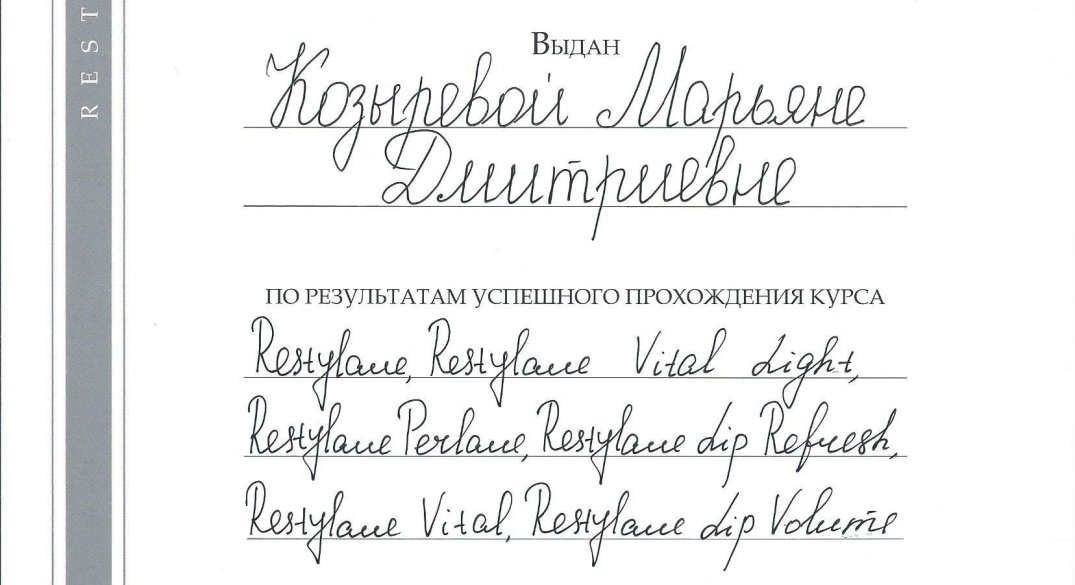 REST
Выдан
Козыревой Марьяне
Дмитриевне
ПО РЕЗУЛЬТАТАМ УСПЕШНОГО ПРОХОЖДЕНИЯ КУРСА
Restylane, Restylane Vital Light,
Restylane Perlane, Restylane Lip Refresh,
Restylane Vital, Restylane Lip Volume